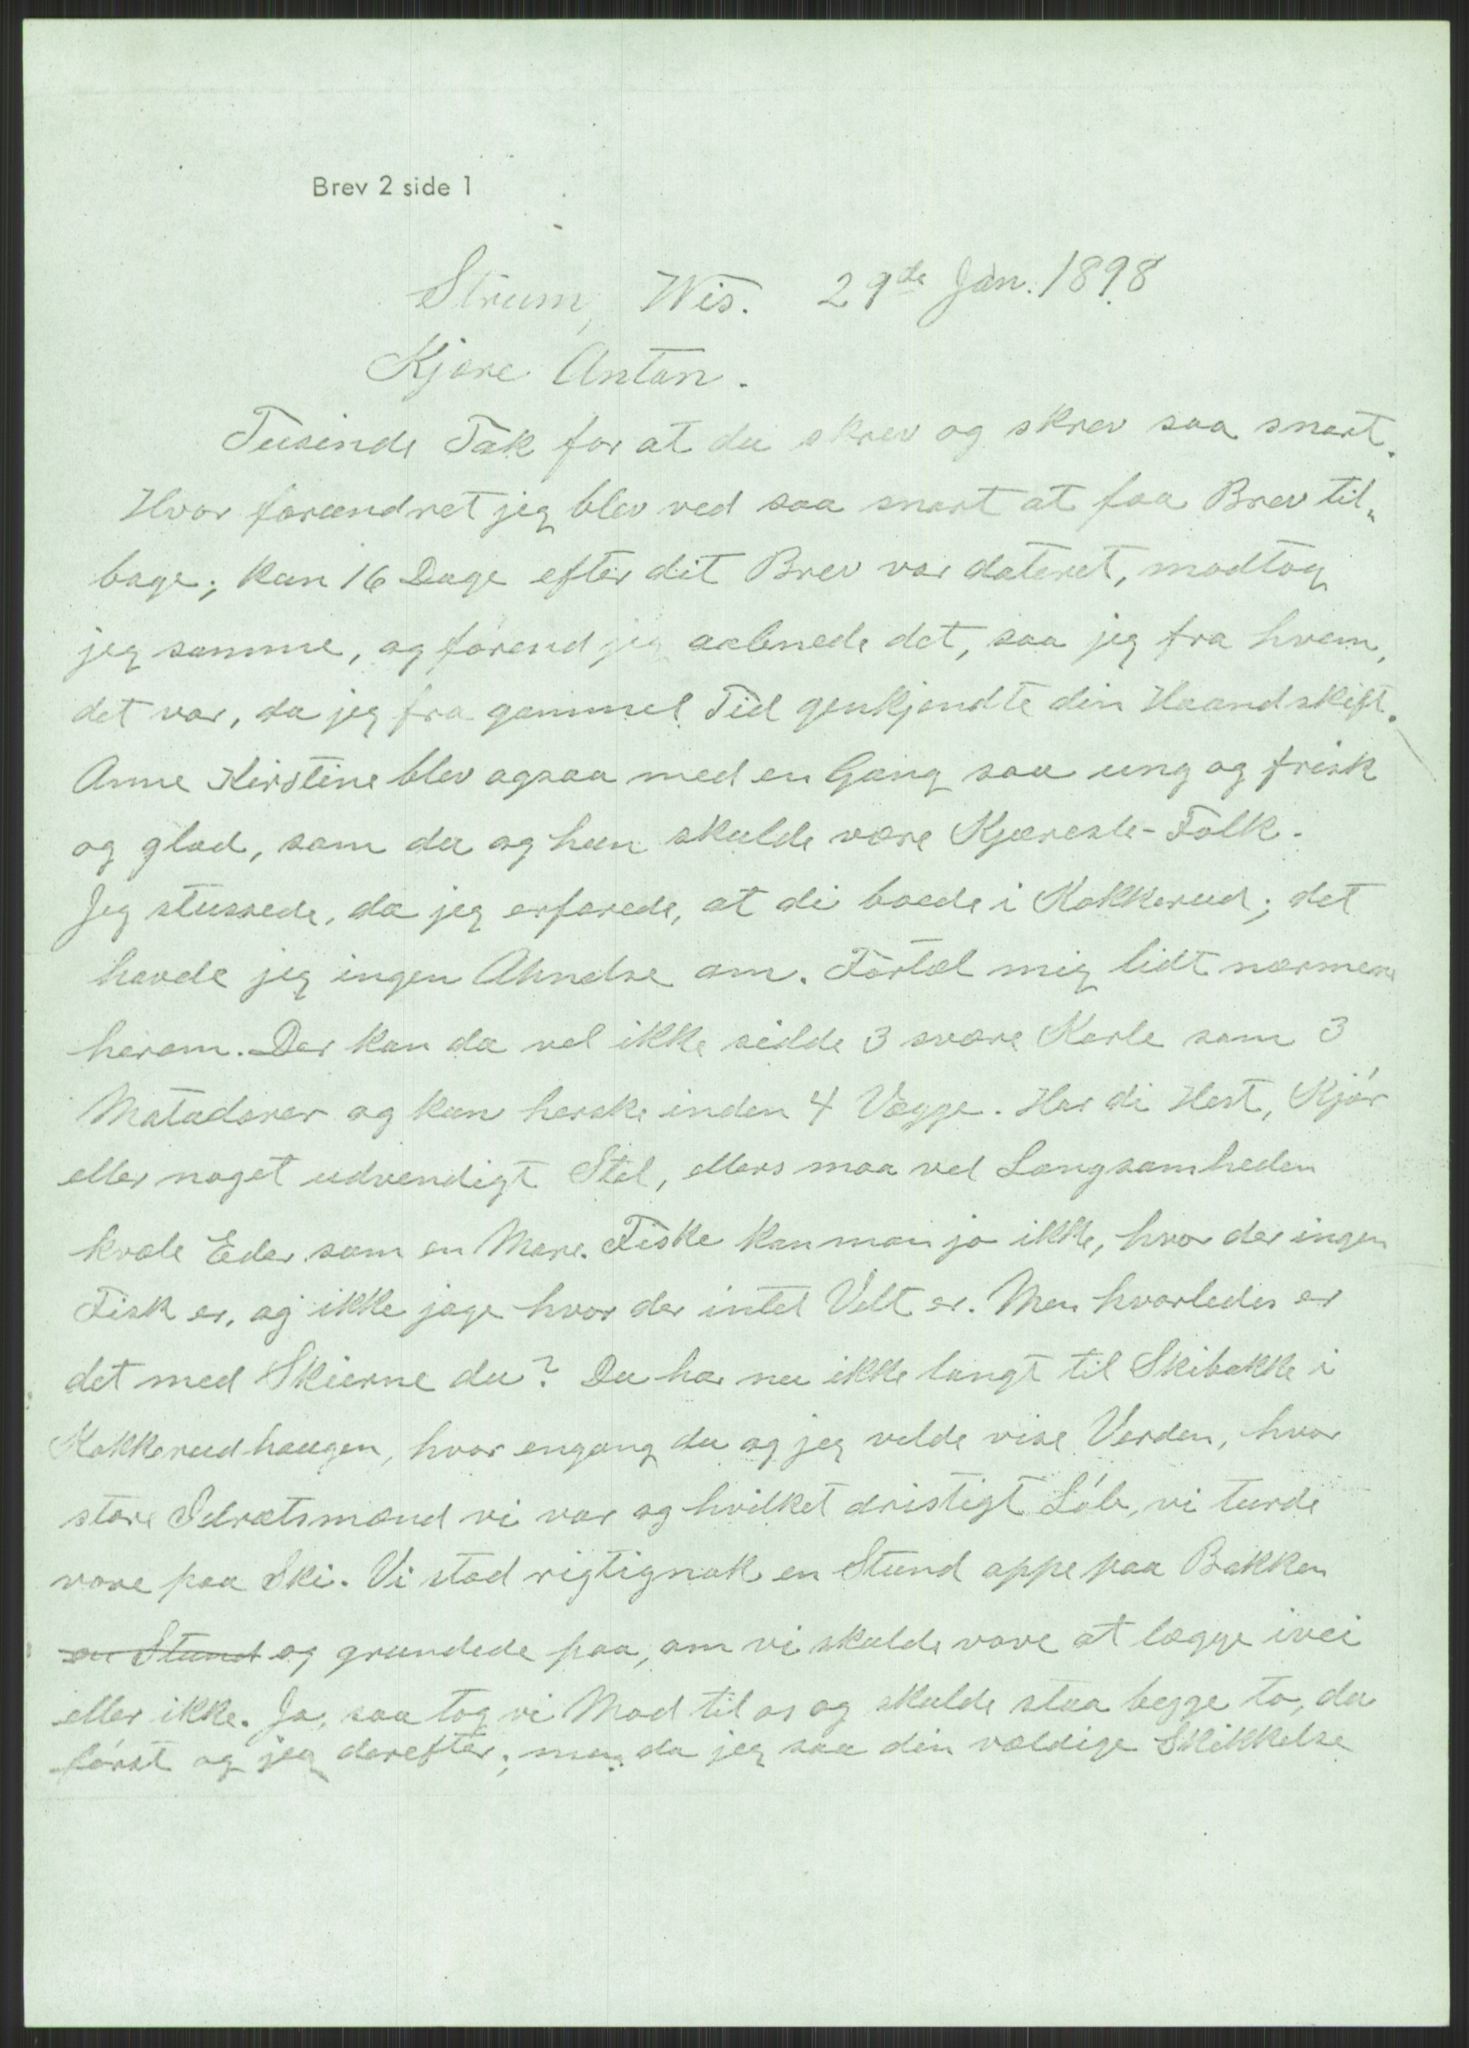 Brev 2 side 1
Strum, Wis. 29de Jan. 1898
Kjære Anton.
Tusinde Tak for at du skrev og skrev saa snart.
Hvor forandret jeg blev ved saa snart at faa Brev til-
bage; kun 16 Dage efter dit Brev var dateret, modtog
jeg samme, og førend jeg aabnede det, saa jeg fra hvem,
det var, da jeg fra gammel Tid gjenkjendte din Haandskift.
Anne Kirstine blev ogsaa med en Gang saa ung og frisk
og glad, som du og hun skulde være Kjæreste-Folk.
Jeg stussede, da jeg erfarede, at di boede i Kokkerud; det
havde jeg ingen Ahnelse om. Fortæl mig lidt nærmere
herom. Der kan da vel ikke sidde 3 svære Karle som 3
Matadorer og kun herske inden 4 Vægge. Har di Hest, Kjør
eller noget udvendigt Stel, ellers maa vel Langsamheden
kvæle Eder som en Mare. Fiske kan man jo ikke, hvor der ingen
Fisk er, og ikke jage hvor der intet Velt er. Men hvorledes er
det med Skierne du? Du har nu ikke langt til Skibakke i
Kokkerudhaugen, hvor engang du og jeg vilde vise Verden, hvor
store Idrætsmænd vi var og hvilket dristigt Løb, vi turde
vove paa Ski. Vi stod rigtignok en Stund oppe paa Bakken
en Stund og grundede paa, om vi skulde vove at lægge ivei
eller ikke. Ja, saa tog vi Mod til os og skulde staa begge to, du
først og jeg derefter; men da jeg saa din vældige Skikkelse